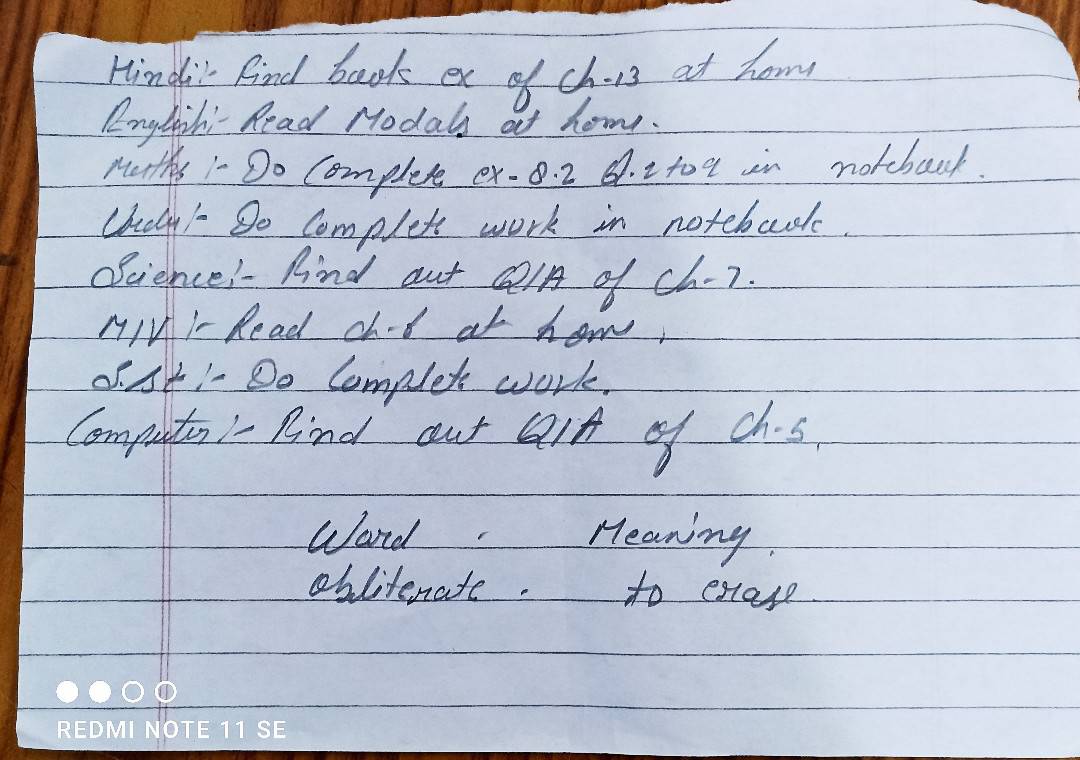 Hindi:- Find back ex of Ch-13 at home
English:- Read Modals at home.
Maths :- Do Complete ex-8.2 Q.2 to 9 in notebook.
Urdu:- Do Complete work in notebook.
Science:- Find out Q/A of Ch-7.
MIV :- Read ch-6 at home.
S.st :- Do Complete work.
Computer:- Find out Q/A of Ch-5.
Word . Meaning.
obliterate . to erase.
REDMI NOTE 11 SE